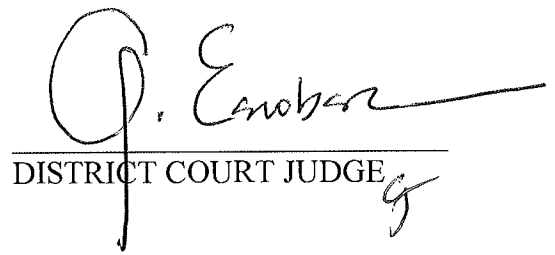 Escobar
DISTRICT COURT JUDGE